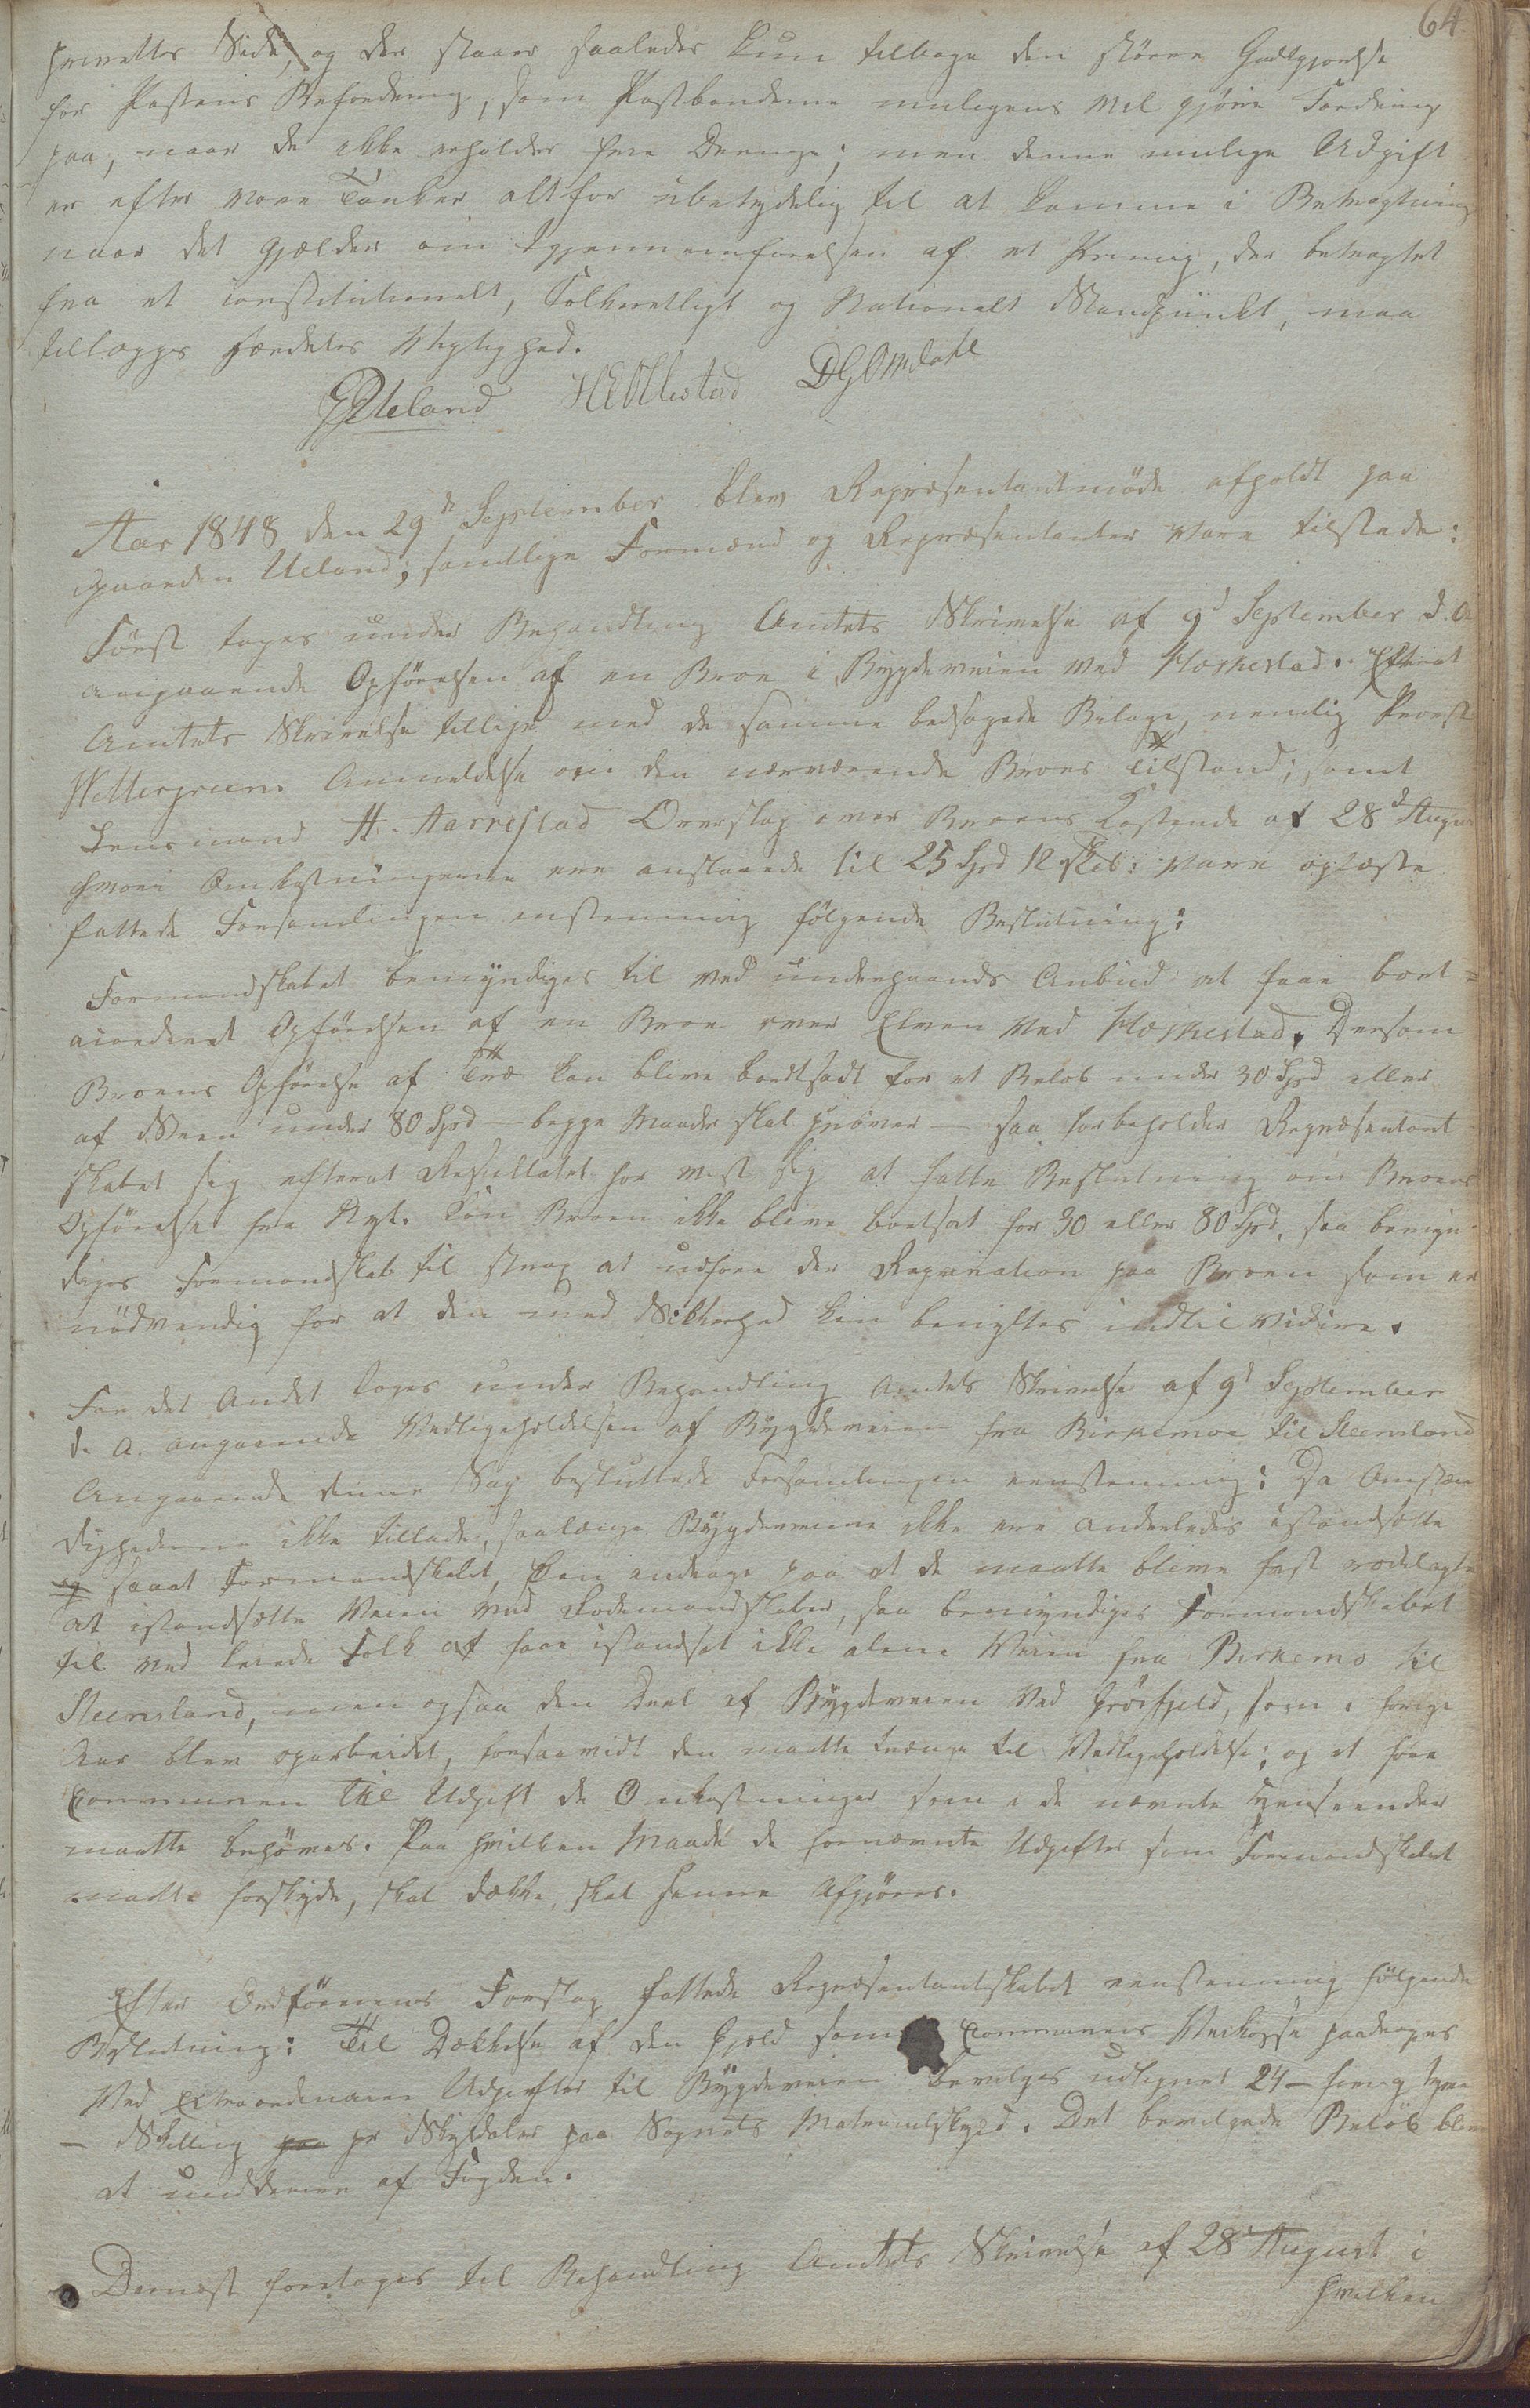 64.
henvettes Side, og der staaer saaledes kun tilbage den större Godtgjørelse
for Postens Befordring, som Postbønderne muligens vil gjöre Fordring
paa, naar de ikke erholder frie Drenge; men denne mulige Udgift
er efter vore Tanker altfor ubetydelig til at komme i Betragtning
naar det gjælder om Igjennemførelsen af et Princip, der betragtet
fra et constitutionelt, Folkeretligt og Nationalt Standpunkt, maa
tillægges særdeles Vigtighed.
GPUeland HEVllestad DGOmdahl
Aar 1848 den 29d September blev Repræsentantmöde afholdt paa
gaarden Ueland; samtlige Formænd og Repræsentanter vare tilstede:
Først toges under Behandling Amtets Skrivelse af 9d September d. A
angaaende Opförelsen af en Broe i Bygdeveien ved Hæskestad. Efterat
Amtets Skrivelse tillige med de samme ledsagede Bilage, nemlig Provst
Wettergreens Anmeldelse om den nærværende Broes Tilstand; samt
Lensmand H. Aarrestad Overslag over Broens Kostende af 28d August
hvori Omkostningerne ere anslaaede til 25 Spd 12 skil: vare oplæste
fattede Forsamlingen enstemmig følgende Beslutning:
Formandskabet bemyndiges til ved underhaands Anbud at faae bort-
accorderet Opförelsen af en Broe over Elven ved Hæskestad. Dersom
Broens Opförelse af Træ kan blive bortsadt for et Beløb under 30 Spd eller
af Steen under 80 Spd - begge Maader skal prøves - saa forbeholder Repræsentant
skabet sig efterat Resultatet har vist sig at fatte Beslutning om Broens
Opförelse fra Nyt. Kan Broen ikke blive bortsat for 30 eller 80 Spd, saa bemyn-
diges Formandskab til strax at udføre den Reparation paa Broen som er
nödvendig for at den med Sikkerhed kan benyttes indtil videre.
For det Andet toges under Behandling Amtets Skrivelse af 9d September
d. A. angaaende Vedligeholdelsen af Bygdeveien fra Birkemoe til Steensland
Angaaende denne Sag besluttede Forsamlingen eenstemmig: Da Omstæn
dighederne ikke tillade, saalænge Bygdeveiene ikke ere anderledes istandsatte
og saaat Formandskabet kan andrage paa at de maatte blive fast rodelagte
at istandsætte Veien ved Rodemandskaber, saa bemyndiges Formandskabet
til ved leiede Folk at faae istandsat ikke alene Veien fra Birkemo til
Steensland, men ogsaa den Deel af Bygdeveien ved Grösfjeld, som i forrige
Aar blev oparbeidet, forsaavidt den maatte trænge til Vedligeholdelse; og at före
Communen til Udgift de Omkostninger som i de nævnte Henseender
maatte behöves. Paa hvilken Maade de fornævnte Udgifter som Formandskabet
maatte forskyde, skal dække, skal senere Afgjöres.
Efter Ordförerens Forslag fattede Repræsentantskabet eenstemmig fölgende
Beslutning: Til Dækkelse af den Gjeld som Communens Veikasse paadrages
ved extraordinaire Udgifter til Bygdeveien bevilges udlignet 24 - fire og tyve
- Skilling paa pr Skyldaler paa Sognets Matrikulskyld. Det bevilgede Beløb blive
at inddrive af Fogden.
Dernæst foretages til Behandling Amtets Skrivelse af 28 August i
hvilken